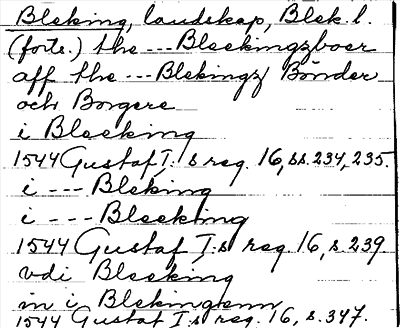 Bleking, landskap, Blek. l.
(forts.) the --- Bleekingzboer
aff the --- Blekingz Bönder
och Borgere
i Bleeking
1544 Gustaf I:s reg. 16, ss. 234, 235.
i --- Bleking
i --- Bleeking
1544 Gustaf I:s reg. 16, s. 239
vdi Bleeking
in i Blekingenn
1544 Gustaf I:s reg. 16, s. 347.